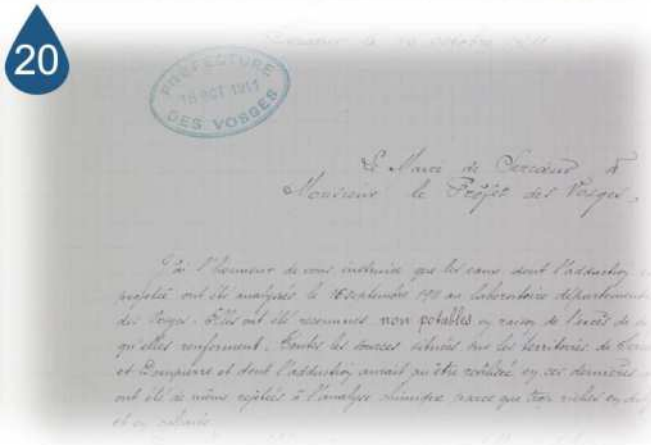 20
Cercœur le 14 octobre 1911
PRÉFECTURE
16 OCT 1911
DES VOSGES
Le Maire de Cercœur à
Monsieur le Préfet des Vosges.
J'ai l'honneur de vous instruire que les eaux dont l'adduction
projetée ont été analysées le 16 septembre 1911 au laboratoire départemental
des Vosges. Elles ont été reconnues non potables en raison de l'excès de
qu'elles renferment. Toutes les sources situées sur les territoires de
et Dompierre et dont l'adduction aurait pu être réalisée en ces dernières
ont été de même rejetées à l'analyse chimique parce que trop riches en
et en